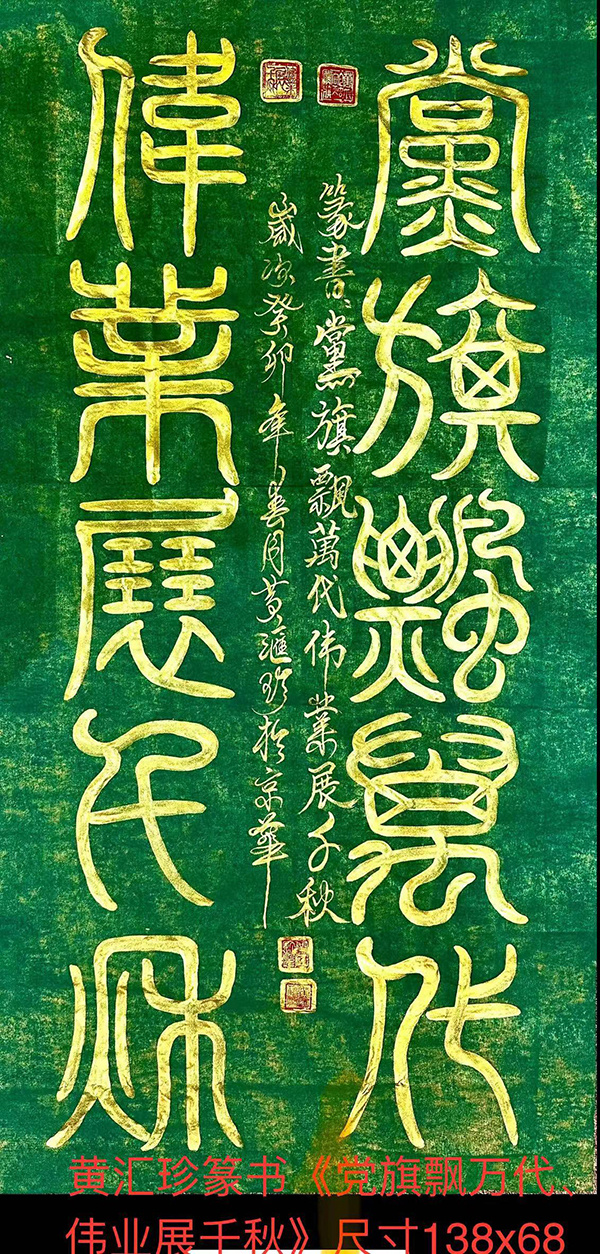 黨旗飄萬代
偉業展千秋
篆書黨旗飄萬代伟業展千秋
歲次癸卯年春月黄滙珍於京華
黄汇珍篆书《党旗飘万代、
伟业展千秋》尺寸138x68